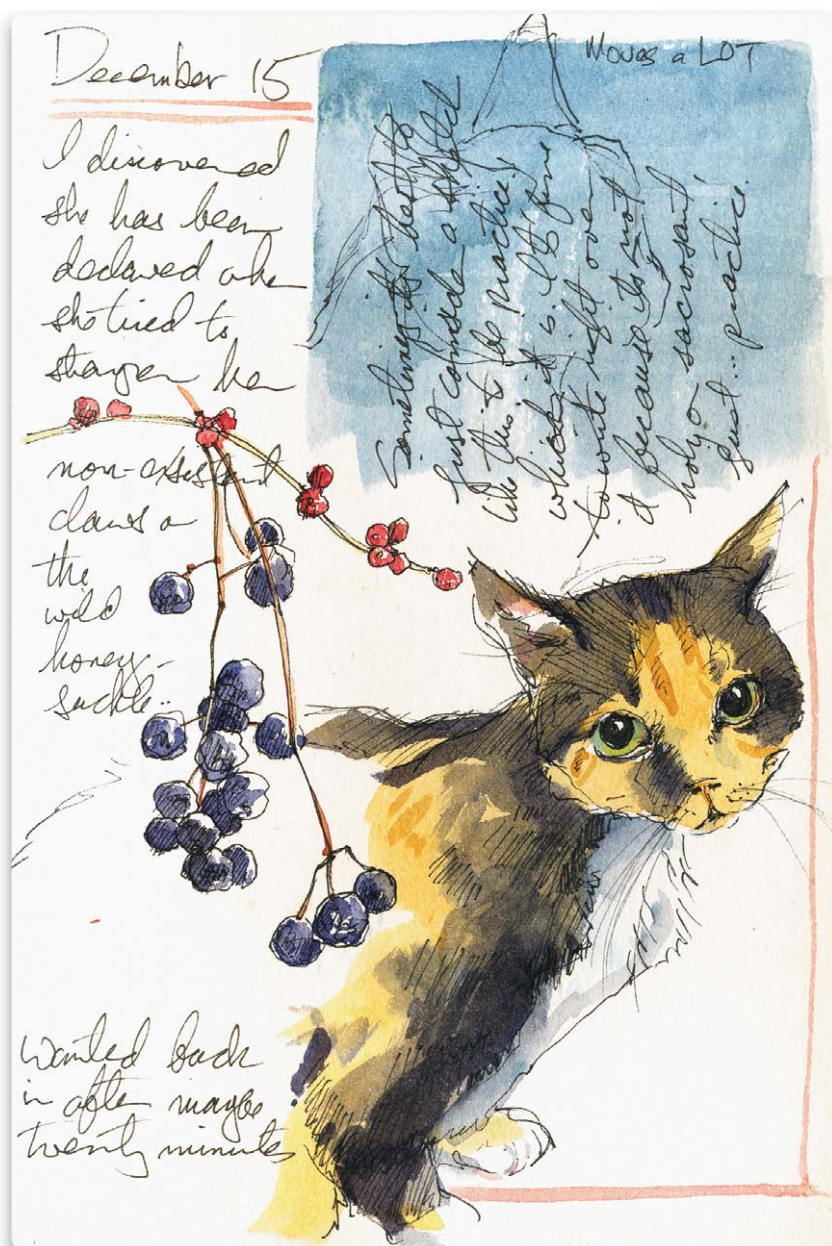 December 15
Moves a LOT
I discovered
she has been
declawed when
she tried to
sharpen her
non-existent
claws on
the
wild
honey-
suckle..
Sometimes it's best to
just consider a sketch
like this to be practice,
which it is. It's fine
to write right over
it because it's not
holy or sacrosanct,
just... practice.
Wanted back
in after maybe
twenty minutes